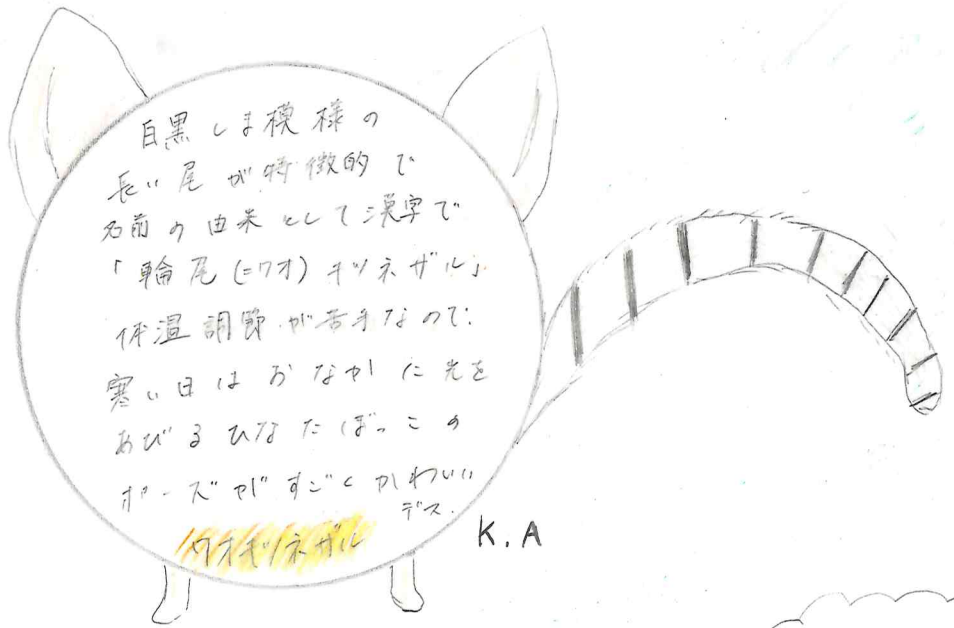 白黒しま模様の
長い尾が特徴的で
名前の由来として漢字で
「輪尾(=ワオ)キツネザル」
体温調節が苦手なので、
寒い日はおなかに光を
あびるひなたぼっこの
ポーズがすごくかわいい
デス.
ワオキツネザル
K.A